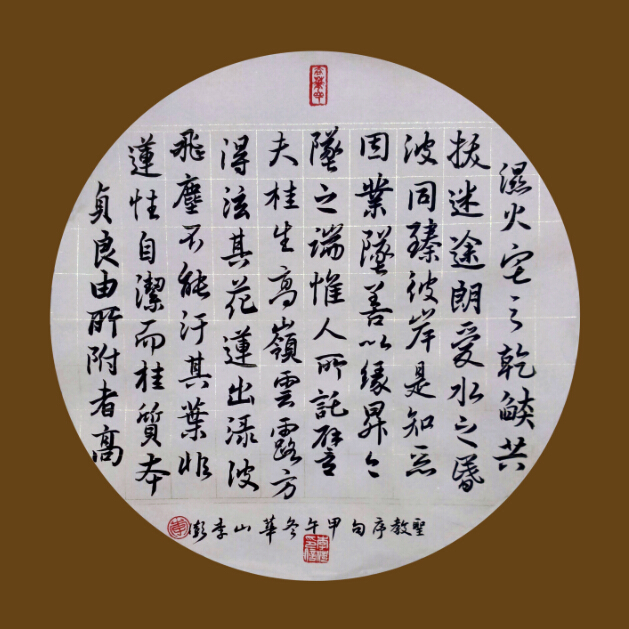 濕火宅之乾燄共
拔迷途朗愛水之昬
波同臻彼岸是知惡
因業墜善以緣昇々
墜之端惟人所託譬
夫桂生高嶺雲露方
得泫其花蓮出淥波
飛塵不能汙其葉非
蓮性自潔而桂質本
貞良由所附者高
聖教序句甲午冬華山李澎